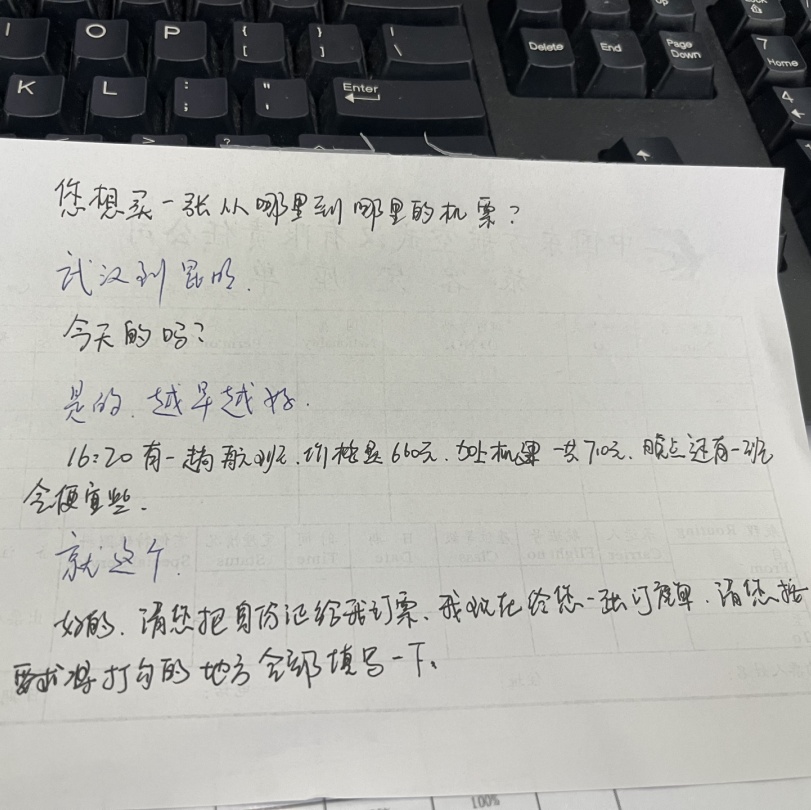 I
O
P
{
[
}
]
|
\
Delete
End
Page
Down
Up
7
Home
K
L
:
;
"
'
Enter
4
您想买一张从哪里到哪里的机票？
武汉到昆明.
今天的吗？
是的. 越早越好.
16:20 有一趟航班, 价格是660元, 加上机建一共710元, 晚点还有一班
会便宜些.
就这个.
好的, 请您把身份证给我订票, 我现在给您一张订座单, 请您按
要求将打勾的地方全部填写一下。
100%